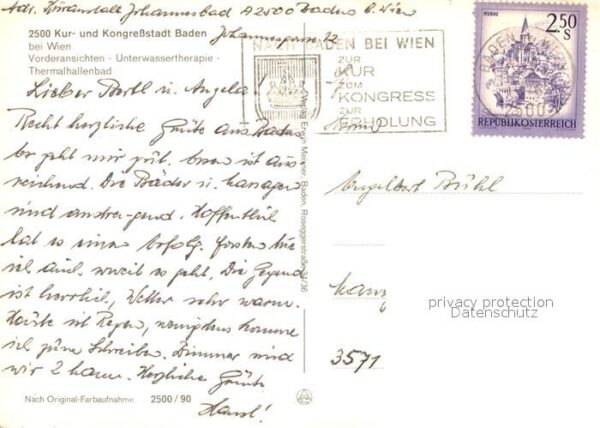 Adr. Kuranstalt Johannesbad A2500 Baden b. Wien
Johannesgasse 12
2500 Kur- und Kongreßstadt Baden
bei Wien
Vorderansichten - Unterwassertherapie -
Thermalhallenbad
NACH BADEN BEI WIEN
ZUR
KUR
ZUM
KONGRESS
ZUR
ERHOLUNG
BADEN WIEN
2500
MURAU
2.50
S
REPUBLIK ÖSTERREICH
Lieber Bertl u. Angela!
Recht herzliche Grüße aus Baden
Er geht mir gut. Essen ist aus
reichend. Die Bäder u. Massagen
sind anstrengend. Hoffentlich
hat es einen Erfolg.
ich auch, soweit es geht. Die Gegend
ist herrlich, Wetter sehr warm.
Heute ist Regen, wenigstens komme
ich zum Schreiben. Zimmer sind
wir 2 Herzliche Grüße
Hansl!
Verlag Erwin Meixner, Baden, Roseggerstraße 34/36
Engelbert Brühl
3571
privacy protection
Datenschutz
Nach Original-Farbaufnahme 2500/90